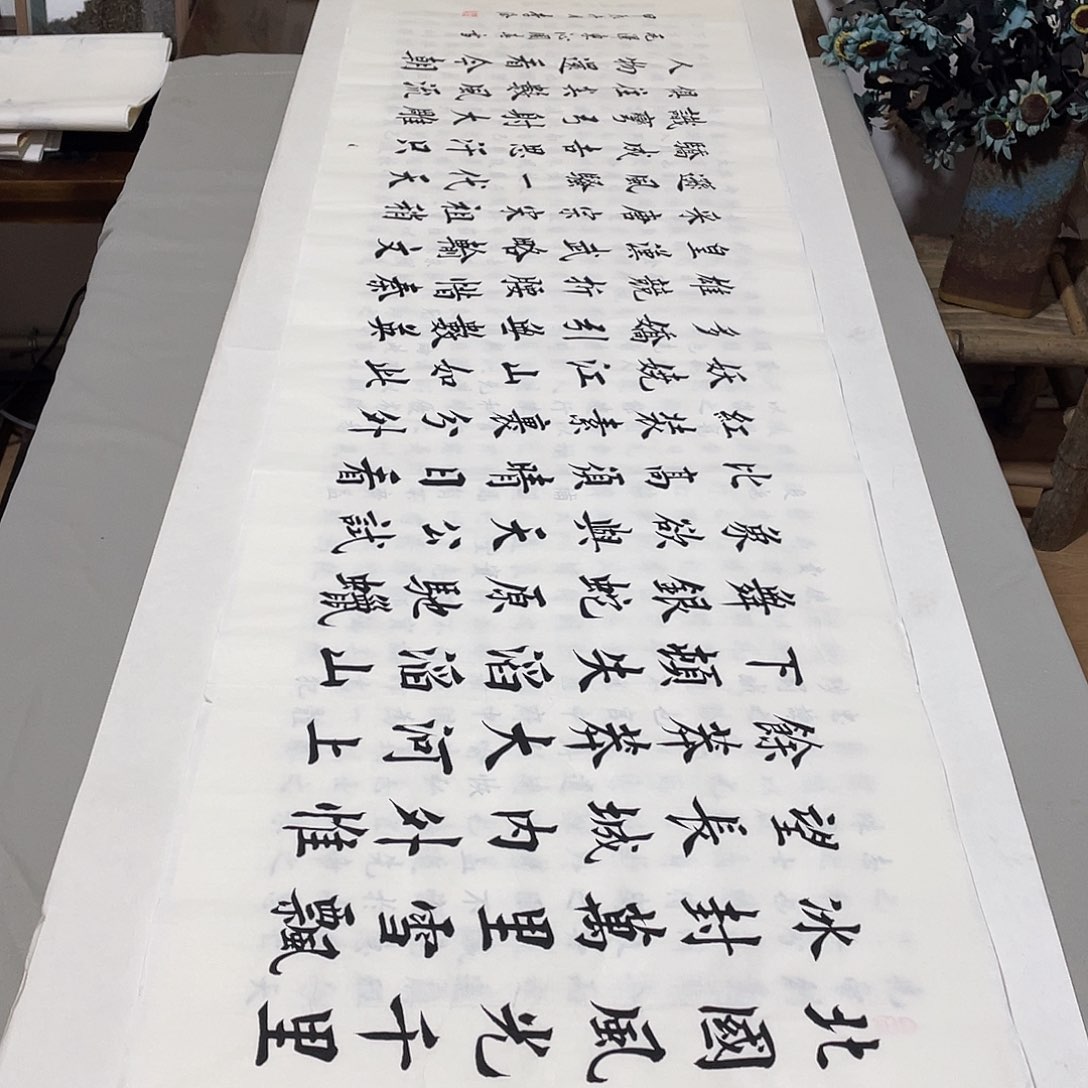 北國風光千里
冰封萬里雪飄
望長城內外惟
餘莽莽大河上
下頓失滔滔山
舞銀蛇原馳蠟
象欲與天公試
比高須晴日看
紅裝素裹分外
妖嬈江山如此
多嬌引無數英
雄競折腰惜秦
皇漢武略輸文
采唐宗宋祖稍
遜風騷一代天
驕成吉思汗只
識彎弓射大雕
俱往矣數風流
人物還看今朝
毛澤東沁園春雪
甲辰